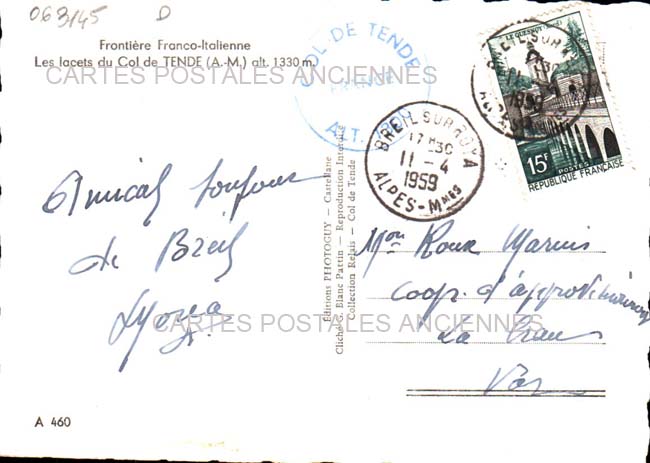 063/45 D
Frontière Franco-Italienne
Les lacets du Col de TENDE (A.-M.) alt. 1330 m.
CARTES POSTALES ANCIENNES
COL DE TENDE
FRANCE
ALT.
BREIL SUR ROYA
17 H30
11 - 4
1959
ALPES-MMES
LE QUESNOY (Nord)
BREIL SUR ROYA
1959
15F
POSTES
RÉPUBLIQUE FRANÇAISE
Amical
de Breil
Éditions PHOTOGUY — Castellane
Cliché G. Blanc Pattin — Reproduction Interdite
Collection Relais — Col de Tende
Mon Roux Marius
Coop. d'approvi
La Crau
Var
CARTES POSTALES ANCIENNES
A 460